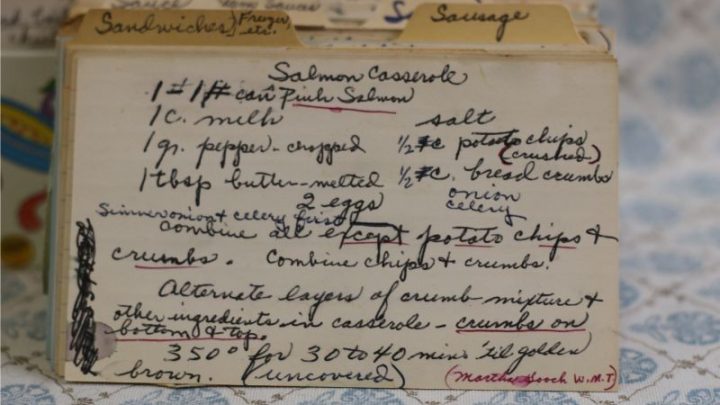 Sauce
Sandwiches Frozen etc.
Sausage
Salmon Casserole
1 # 1 # can Pink Salmon
1 c. milk
salt
1 gr. pepper - chopped
1/2 c potato chips
(crushed)
1 tbsp butter - melted
1/2 c. bread crumbs
2 eggs
onion
celery
Simmer onion & celery first
Combine all except potato chips &
crumbs. Combine chips & crumbs.
Alternate layers of crumb mixture &
other ingredients in casserole - crumbs on
bottom & top.
350° for 30 to 40 min 'til golden
brown. (uncovered)
(Martha Gooch W.M.T)